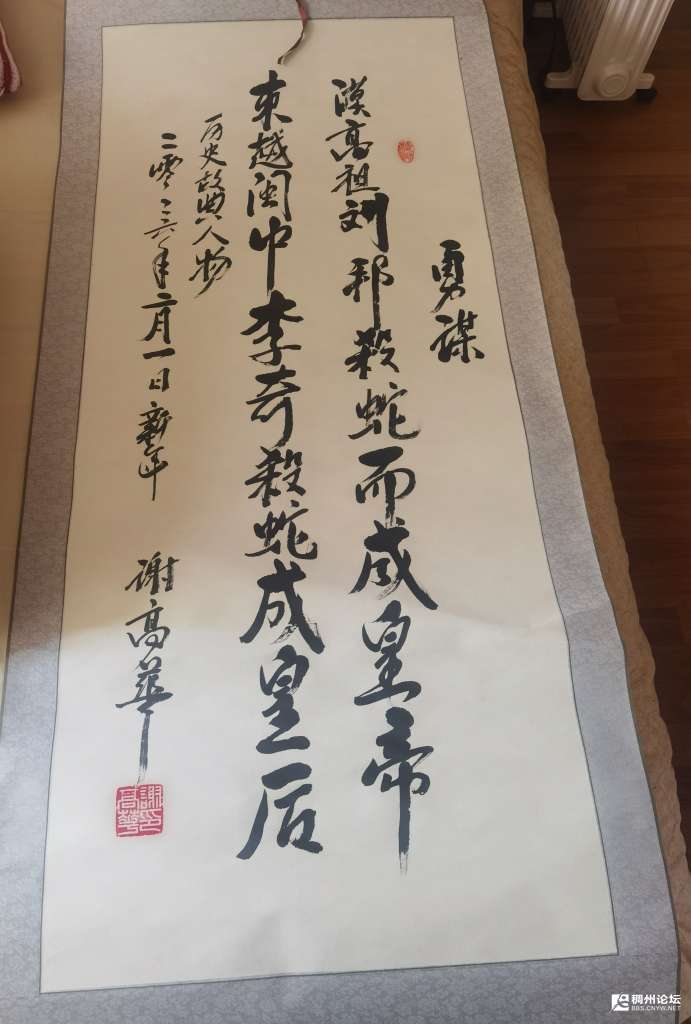 勇谋
漢高祖刘邦殺蛇而成皇帝
東越闽中李奇殺蛇成皇后
历史故典人物
二零一六年二月一日新年 谢高華
謝印高華
稠州论坛
BBS.CNYW.NET